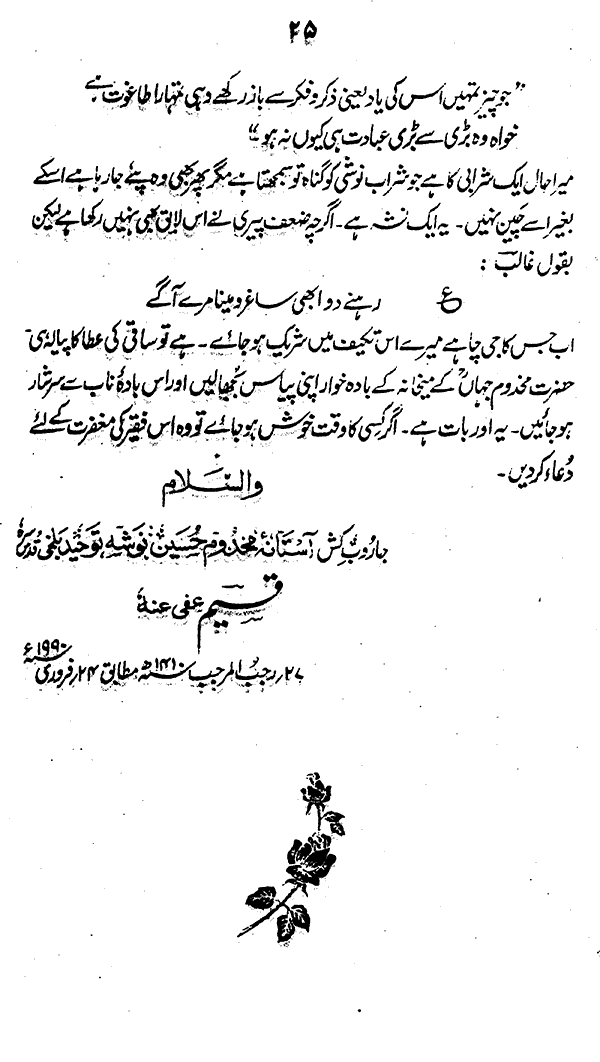 ۲۵
”جو چیز تمہیں اس کی یاد یعنی ذکر و فکر سے باز رکھے وہی تمہارا طاغوت ہے
خواہ وہ بڑی سے بڑی عبادت ہی کیوں نہ ہو“
میرا حال ایک شرابی کا ہے جو شراب نوشی کو گناہ تو سمجھتا ہے مگر پھر بھی وہ پئے جا رہا ہے اسکے
بغیر اسے چین نہیں۔ یہ ایک نشہ ہے۔ اگرچہ ضعف پیری نے اس لائق بھی نہیں رکھا ہے لیکن
بقول غالب :
ع رہنے دو ابھی ساغر و مینا مرے آگے
اب جس کا جی چاہے میرے اس تکیف میں شریک ہو جائے۔ ہے تو ساقی کی عطا کا پیالہ ہی
حضرت مخدوم جہاںؒ کے میخانہ کے بادہ خوار اپنی پیاس بجھالیں اور اس بادۂ ناب سے سرشار
ہو جائیں۔ یہ اور بات ہے۔ اگر کسی کا وقت خوش ہو جائے تو وہ اس فقیر کی مغفرت کے لئے
دُعاء کر دیں۔
والسّلام
جاروب کش آستانۂ مخدوم حُسین نوشہ توحید بلخی قدسرہٗ
قسیم عفی عنہٗ
۲۷؍ رجب المرجب ۱۴۱۰ھ مطابق ۲۴؍ فروری ۱۹۹۰ء